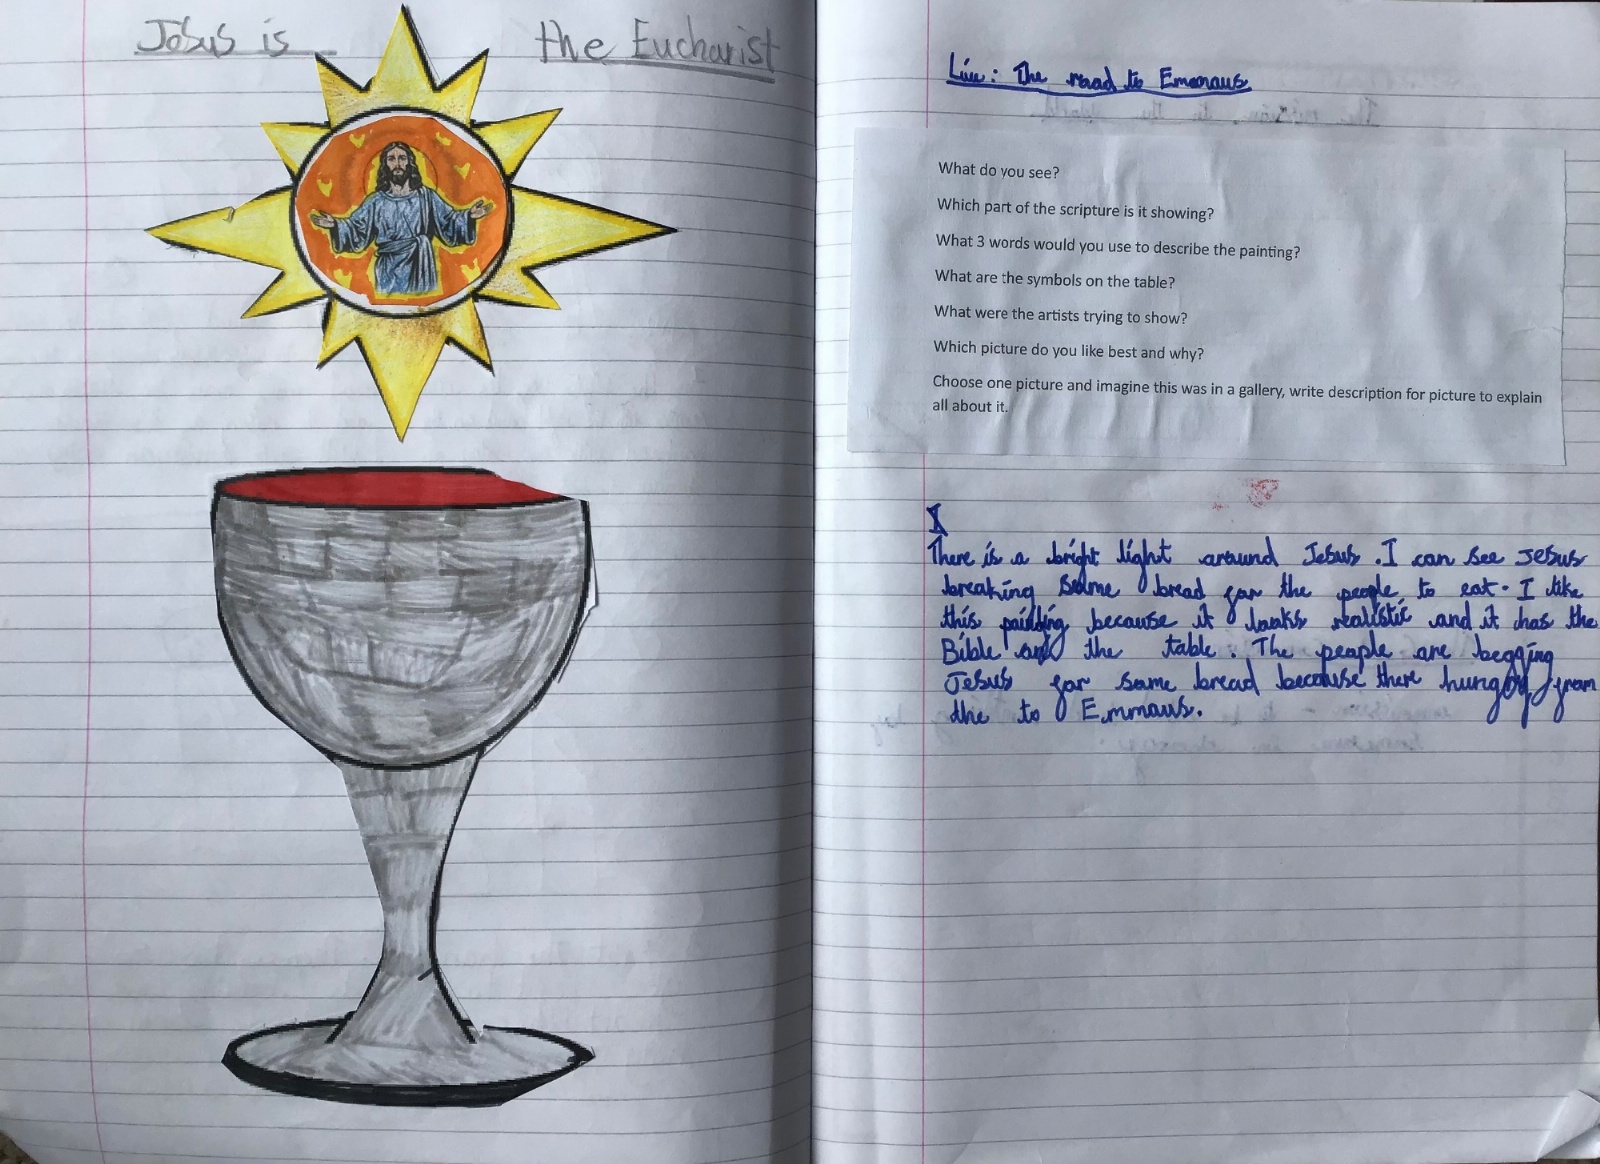 Jesus is the Eucharist
Live: The road to Emmaus
What do you see?
Which part of the scripture is it showing?
What 3 words would you use to describe the painting?
What are the symbols on the table?
What were the artists trying to show?
Which picture do you like best and why?
Choose one picture and imagine this was in a gallery, write description for picture to explain
all about it.
There is a bright light around Jesus. I can see Jesus
breaking some bread for the people to eat. I like
this painting because it looks realistic and it has the
Bible and the table. The people are begging
Jesus for some bread because there hungry from
the to Emmaus.